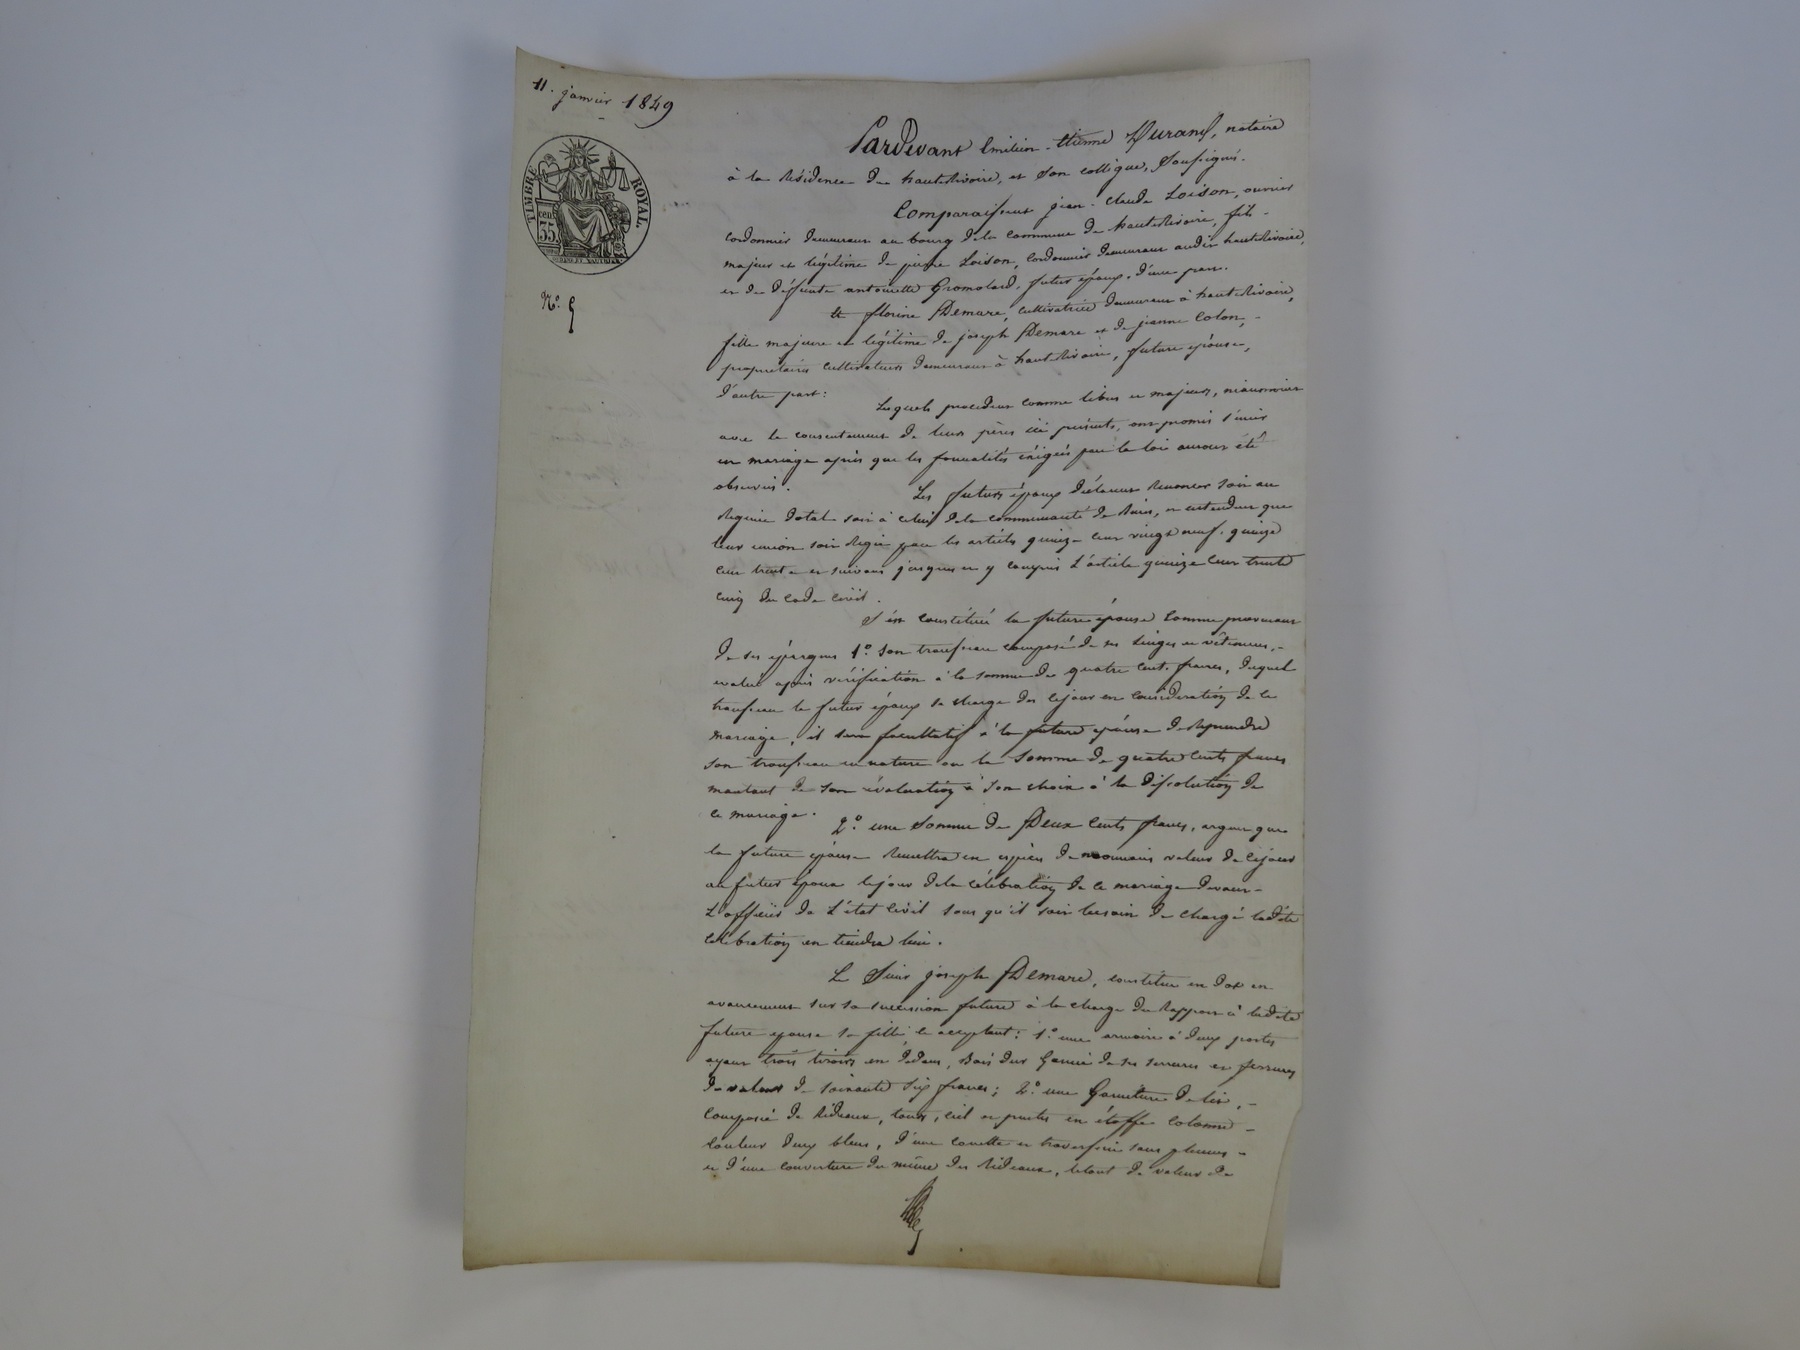 11. janvier 1849
TIMBRE ROYAL
cen
35.
N° 5
Pardevant Emilien - Etienne Durand, notaire
à la Résidence de hauteRivoire, et son collègue, soussignés.
Comparaissent jean-Claude Loison, ouvrier
cordonnier demeurant au bourg de la commune de hauteRivoire, fils
majeur et légitime de pierre Loison, cordonnier demeurant audit hauteRivoire,
et de défunte antoinette Gromolard, futur époux, d'une part.
Et florine Demare, cultivatrice demeurant à hauteRivoire,
fille majeure et légitime de joseph Demare et de jeanne Colon,
propriétaires cultivateurs demeurant à haute Rivoire, future épouse,
d'autre part:
Lesquels procédant comme libres et majeurs, néanmoins
avec le consentement de leurs pères ici présents, ont promis s'unir
en mariage après que les formalités éxigées par la loi auront été
observées.
Les futurs époux déclarent Renoncer soit au
Régime dotal soit à celui de la communauté de Biens, et entendent que
leur union soit Régie par les articles quinze cent vingt neuf, quinze
cent trente et suivans jusques et y compris L'article quinze cent trente
cinq du code civil.
S'est constitué la future épouse comme provenant
de ses épargnes 1° son trousseau composé de ses linges et vêtemens,
évalué après vérification à la somme de quatre cents francs, duquel
trousseau le futur époux se charge dès cejour en considération de ce
mariage, il sera facultatif à la future épouse de Reprendre
son trousseau en nature ou la somme de quatre cents francs
montant de son évaluation à son choix à la dissolution de
ce mariage.
2° une somme de Deux cents francs, argent que
la future épouse Remettra en espèces de monnaies valeur de cejour
au futur époux lejour de la célébration de ce mariage devant
L'officier de L'état civil sans qu'il soit besoin de charge ladite
célébration en tiendra lieu.
Le Sieur joseph Demare, constitue en dot en
avancement sur sa succession future à la charge du Rapport à ladite
future épouse sa fille, ce acceptant: 1° une armoire à deux portes
ayant trois tiroirs en dedans, Bois dur Garnie de ses serrures et ferrures
de valeur de soixante six francs; 2° une Garniture de lit,
Composée de Rideaux, tours, ciel et pentes en étoffe cotonne
couleur deux bleus, d'une couette et traversin sans plumes
et d'une couverture du même des Rideaux, letout de valeur de